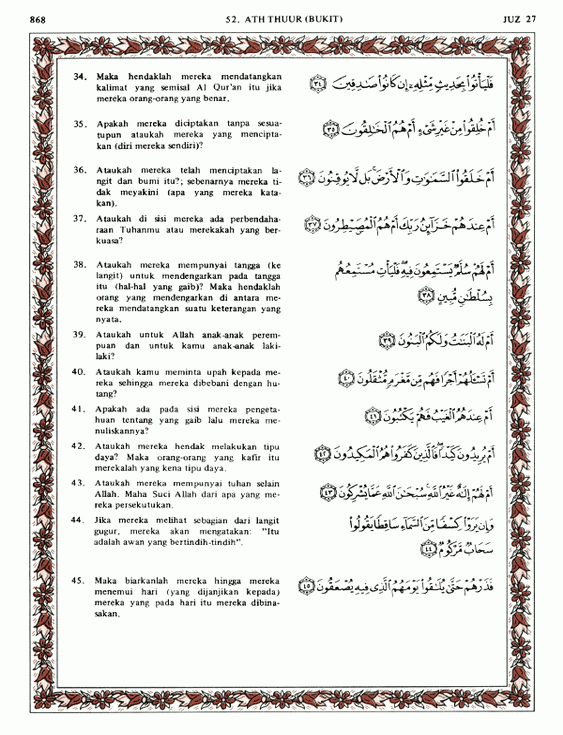 868 52. ATH THUUR (BUKIT) JUZ 27
34. Maka hendaklah mereka mendatangkan
kalimat yang semisal Al Qur'an itu jika
mereka orang-orang yang benar.
فَلْيَأْتُوا۟ بِحَدِيثٍ مِّثْلِهِۦٓ إِن كَانُوا۟ صَـٰدِقِينَ ﴿٣٤﴾
35. Apakah mereka diciptakan tanpa sesua-
tupun ataukah mereka yang mencipta-
kan (diri mereka sendiri)?
أَمْ خُلِقُوا۟ مِنْ غَيْرِ شَىْءٍ أَمْ هُمُ ٱلْخَـٰلِقُونَ ﴿٣٥﴾
36. Ataukah mereka telah menciptakan la-
ngit dan bumi itu?; sebenarnya mereka ti-
dak meyakini (apa yang mereka kata-
kan).
أَمْ خَلَقُوا۟ ٱلسَّمَـٰوَٰتِ وَٱلْأَرْضَ ۚ بَل لَّا يُوقِنُونَ ﴿٣٦﴾
37. Ataukah di sisi mereka ada perbendaha-
raan Tuhanmu atau merekakah yang ber-
kuasa?
أَمْ عِندَهُمْ خَزَآئِنُ رَبِّكَ أَمْ هُمُ ٱلْمُصَۣيْطِرُونَ ﴿٣٧﴾
38. Ataukah mereka mempunyai tangga (ke
langit) untuk mendengarkan pada tangga
itu (hal-hal yang gaib)? Maka hendaklah
orang yang mendengarkan di antara me-
reka mendatangkan suatu keterangan yang
nyata.
أَمْ لَهُمْ سُلَّمٌ يَسْتَمِعُونَ فِيهِ ۖ فَلْيَأْتِ مُسْتَمِعُهُم
بِسُلْطَـٰنٍ مُّبِينٍ ﴿٣٨﴾
39. Ataukah untuk Allah anak-anak perem-
puan dan untuk kamu anak-anak laki-
laki?
أَمْ لَهُ ٱلْبَنَـٰتُ وَلَكُمُ ٱلْبَنُونَ ﴿٣٩﴾
40. Ataukah kamu meminta upah kepada me-
reka sehingga mereka dibebani dengan hu-
tang?
أَمْ تَسْـَٔلُهُمْ أَجْرًا فَهُم مِّن مَّغْرَمٍ مُّثْقَلُونَ ﴿٤٠﴾
41. Apakah ada pada sisi mereka pengeta-
huan tentang yang gaib lalu mereka me-
nuliskannya?
أَمْ عِندَهُمُ ٱلْغَيْبُ فَهُمْ يَكْتُبُونَ ﴿٤١﴾
42. Ataukah mereka hendak melakukan tipu
daya? Maka orang-orang yang kafir itu
merekalah yang kena tipu daya.
أَمْ يُرِيدُونَ كَيْدًا ۖ فَٱلَّذِينَ كَفَرُوا۟ هُمُ ٱلْمَكِيدُونَ ﴿٤٢﴾
43. Ataukah mereka mempunyai tuhan selain
Allah. Maha Suci Allah dari apa yang me-
reka persekutukan.
أَمْ لَهُمْ إِلَـٰهٌ غَيْرُ ٱللَّهِ ۚ سُبْحَـٰنَ ٱللَّهِ عَمَّا يُشْرِكُونَ ﴿٤٣﴾
44. Jika mereka melihat sebagian dari langit
gugur, mereka akan mengatakan: "Itu
adalah awan yang bertindih-tindih".
وَإِن يَرَوْا۟ كِسْفًا مِّنَ ٱلسَّمَآءِ سَاقِطًا يَقُولُوا۟
سَحَابٌ مَّرْكُومٌ ﴿٤٤﴾
45. Maka biarkanlah mereka hingga mereka
menemui hari (yang dijanjikan kepada)
mereka yang pada hari itu mereka dibina-
sakan.
فَذَرْهُمْ حَتَّىٰ يُلَـٰقُوا۟ يَوْمَهُمُ ٱلَّذِى فِيهِ يُصْعَقُونَ ﴿٤٥﴾